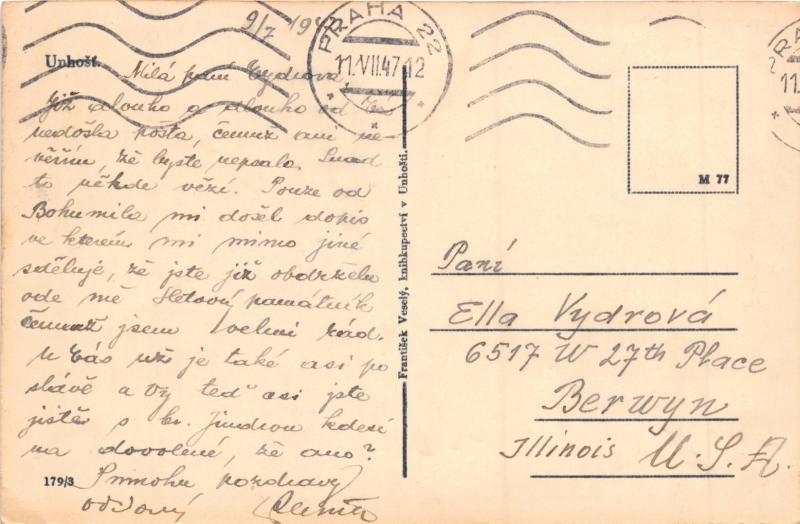 9/7 1947
PRAHA 22
11.VII.47-12
Unhošť.
Milá paní Vydrova
Již dlouho a dlouho od Vás
nedošla pošta, čemuz ani ne-
věřím, že byste nepsala. Snad
to někde vězí. Pouze od
Bohumila mi došel dopis
ve kterém mi mimo jiné
sděluje, že jste již obdržela
ode mě Sletový památník
čemuž jsem velmi rád.
U Vás už je také asi po
slávě a Vy teď asi jste
jistě s br. Jindrou kdesi
na dovolené, že ano?
S mnoha pozdravy
oddaný
179/3
František Veselý, knihkupectví v Unhošti.
M 77
PRA
11.
Paní
Ella Vydrová
6517 W 27th Place
Berwyn
Illinois U.S.A.